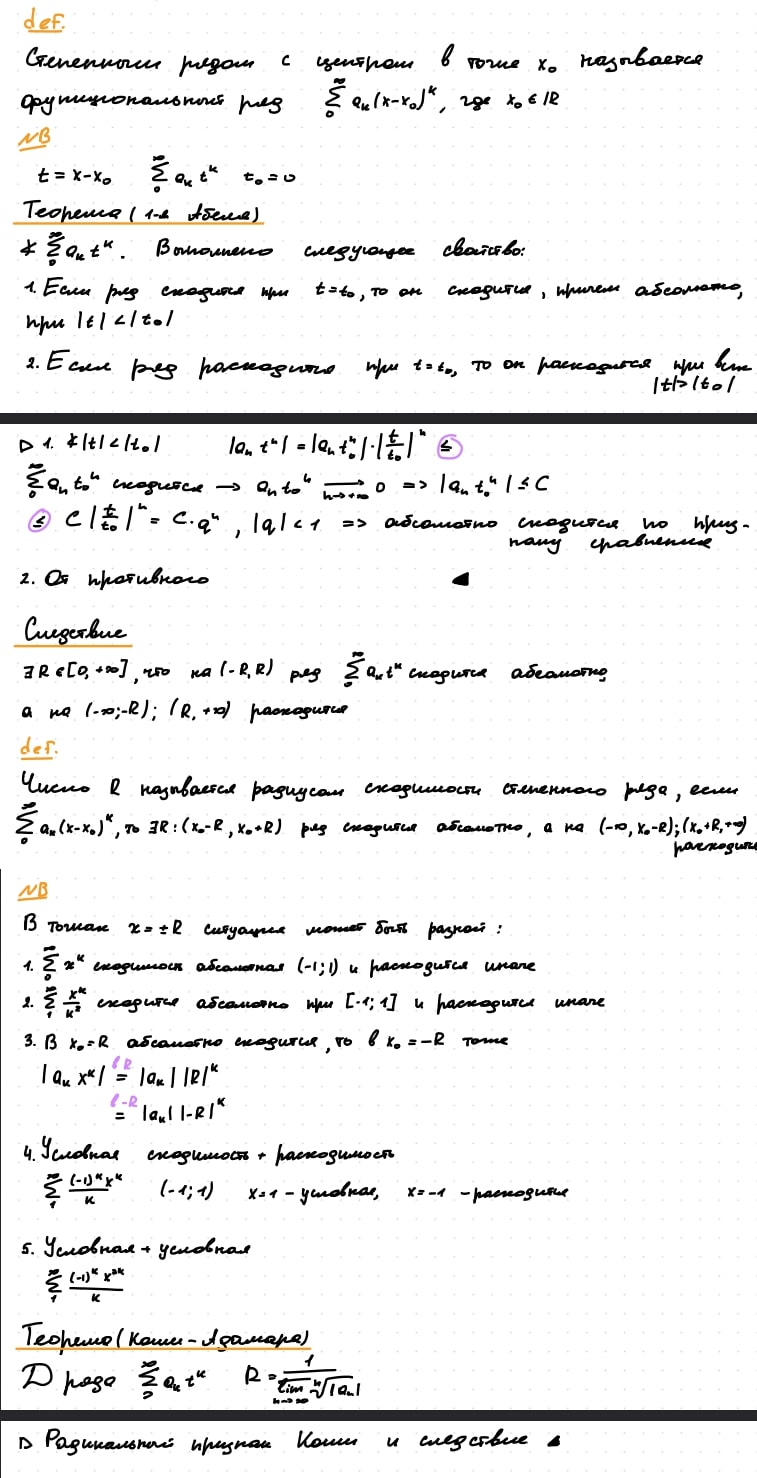 def.
Степенным рядом с центром в точке x₀ называется
функциональный ряд ∑₀^∞ aₖ(x-x₀)ᵏ, где x₀ ∈ ℝ
NB
t = x-x₀ ∑₀^∞ aₖ tᵏ t₀ = 0
Теорема (1-я Абеля)
∀ ∑₀^∞ aₖ tᵏ. Выполнено следующее свойство:
1. Если ряд сходится при t = t₀, то он сходится, причем абсолютно,
при |t| < |t₀|
2. Если ряд расходится при t = t₀, то он расходится при всех
|t| > |t₀|
▷ 1. ∀ |t| < |t₀| |aₙ tⁿ| = |aₙ t₀ⁿ| · |t/t₀|ⁿ ≤
∑₀^∞ aₙ t₀ⁿ сходится → aₙ t₀ⁿ ⟶ (n→+∞) 0 => |aₙ t₀ⁿ| ≤ C
≤ C |t/t₀|ⁿ = C·qⁿ, |q| < 1 => абсолютно сходится по приз-
наку сравнения
2. От противного ◀
Следствие
∃ R ∈ [0, +∞], что на (-R, R) ряд ∑₀^∞ aₖ tᵏ сходится абсолютно,
а на (-∞; -R); (R, +∞) расходится
def.
Число R называется радиусом сходимости степенного ряда, если
∑₀^∞ aₖ(x-x₀)ᵏ, то ∃R: (x₀-R, x₀+R) ряд сходится абсолютно, а на (-∞, x₀-R); (x₀+R, +∞)
расходится
NB
В точках x = ±R ситуация может быть разной:
1. ∑₀^∞ xᵏ сходимость абсолютная (-1; 1) и расходится иначе
2. ∑₁^∞ xᵏ/k² сходится абсолютно при [-1; 1] и расходится иначе
3. В x₀ = R абсолютно сходится, то в x₀ = -R тоже
|aₖ xᵏ| = (в R) |aₖ| |R|ᵏ
= (в -R) |aₖ| |-R|ᵏ
4. Условная сходимость + расходимость
∑₁^∞ (-1)ᵏxᵏ/k (-1; 1) x = 1 - условная, x = -1 - расходится
5. Условная + условная
∑₁^∞ (-1)ᵏ x²ᵏ/k
Теорема (Коши-Адамара)
D ряда ∑₀^∞ aₖ tᵏ R = 1/(lim̅ (n→∞) ⁿ√|aₙ|)
▷ Радикальный признак Коши и следствие ◀